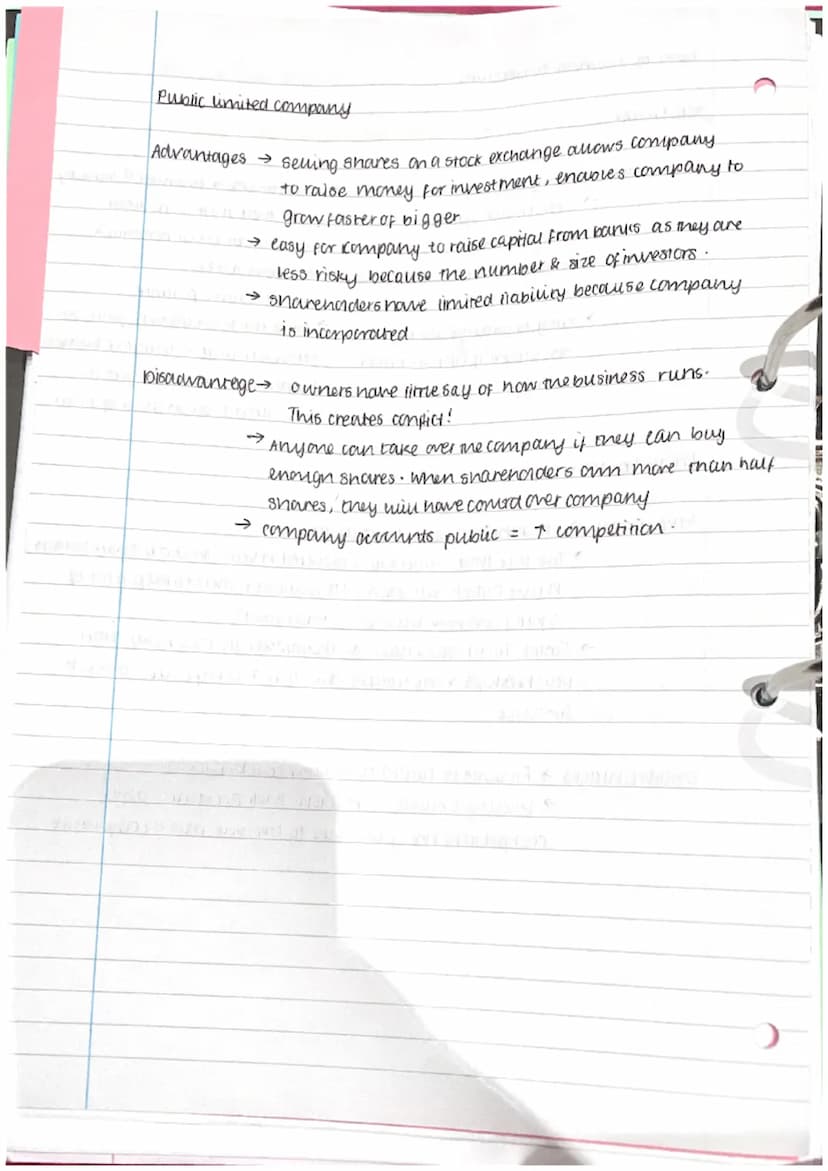 Public limited company
Advantages → selling shares on a stock exchange allows company
to raise money for investment, enables company to
grow faster of bigger
→ easy for company to raise capital from banks as they are
less risky because the number & size of investors.
→ shareholders have limited liability because company
is incorporated
Disadvantege → owners have little say of how the business runs.
This creates conflict!
→ Anyone can take over the company if they can buy
enough shares. When shareholders own more than half
shares, they will have control over company
→ company accounts public = ↑ competition.